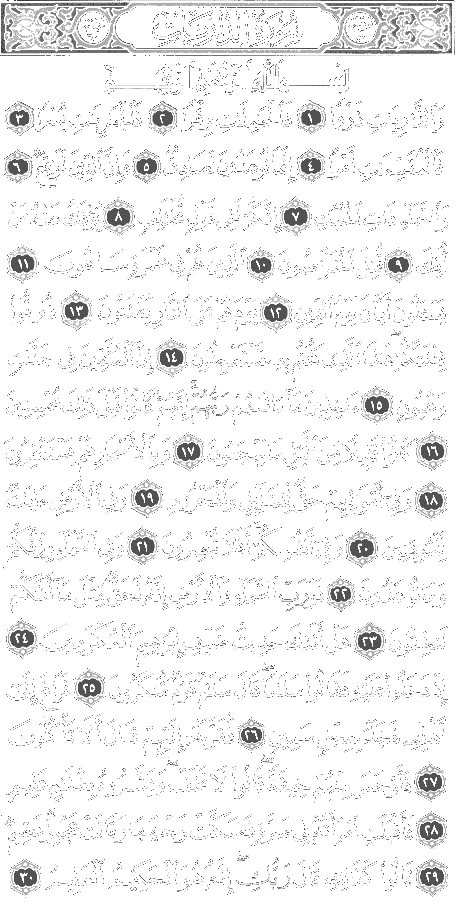 سُورَةُ الذَّارِيَاتِ
بِسْمِ اللَّهِ الرَّحْمَٰنِ الرَّحِيمِ
وَالذَّٰرِيَٰتِ ذَرْوًا ١ فَالْحَٰمِلَٰتِ وِقْرًا ٢ فَالْجَٰرِيَٰتِ يُسْرًا ٣
فَالْمُقَسِّمَٰتِ أَمْرًا ٤ إِنَّمَا تُوعَدُونَ لَصَادِقٌ ٥ وَإِنَّ الدِّينَ لَوَٰقِعٌ ٦
وَالسَّمَاءِ ذَاتِ الْحُبُكِ ٧ إِنَّكُمْ لَفِي قَوْلٍ مُّخْتَلِفٍ ٨ يُؤْفَكُ عَنْهُ مَنْ
أُفِكَ ٩ قُتِلَ الْخَرَّٰصُونَ ١٠ الَّذِينَ هُمْ فِي غَمْرَةٍ سَاهُونَ ١١
يَسْـَٔلُونَ أَيَّانَ يَوْمُ الدِّينِ ١٢ يَوْمَ هُمْ عَلَى النَّارِ يُفْتَنُونَ ١٣ ذُوقُوا
فِتْنَتَكُمْ هَٰذَا الَّذِي كُنتُم بِهِ تَسْتَعْجِلُونَ ١٤ إِنَّ الْمُتَّقِينَ فِي جَنَّٰتٍ
وَعُيُونٍ ١٥ ءَاخِذِينَ مَا ءَاتَىٰهُمْ رَبُّهُمْ إِنَّهُمْ كَانُوا قَبْلَ ذَٰلِكَ مُحْسِنِينَ
١٦ كَانُوا قَلِيلًا مِّنَ الَّيْلِ مَا يَهْجَعُونَ ١٧ وَبِالْأَسْحَارِ هُمْ يَسْتَغْفِرُونَ
١٨ وَفِي أَمْوَٰلِهِمْ حَقٌّ لِّلسَّائِلِ وَالْمَحْرُومِ ١٩ وَفِي الْأَرْضِ ءَايَٰتٌ
لِّلْمُوقِنِينَ ٢٠ وَفِي أَنفُسِكُمْ أَفَلَا تُبْصِرُونَ ٢١ وَفِي السَّمَاءِ رِزْقُكُمْ
وَمَا تُوعَدُونَ ٢٢ فَوَرَبِّ السَّمَاءِ وَالْأَرْضِ إِنَّهُ لَحَقٌّ مِّثْلَ مَا أَنَّكُمْ
تَنطِقُونَ ٢٣ هَلْ أَتَىٰكَ حَدِيثُ ضَيْفِ إِبْرَٰهِيمَ الْمُكْرَمِينَ ٢٤
إِذْ دَخَلُوا عَلَيْهِ فَقَالُوا سَلَٰمًا قَالَ سَلَٰمٌ قَوْمٌ مُّنكَرُونَ ٢٥ فَرَاغَ إِلَىٰ
أَهْلِهِ فَجَاءَ بِعِجْلٍ سَمِينٍ ٢٦ فَقَرَّبَهُ إِلَيْهِمْ قَالَ أَلَا تَأْكُلُونَ
٢٧ فَأَوْجَسَ مِنْهُمْ خِيفَةً قَالُوا لَا تَخَفْ وَبَشَّرُوهُ بِغُلَٰمٍ عَلِيمٍ
٢٨ فَأَقْبَلَتِ امْرَأَتُهُ فِي صَرَّةٍ فَصَكَّتْ وَجْهَهَا وَقَالَتْ عَجُوزٌ عَقِيمٌ
٢٩ قَالُوا كَذَٰلِكِ قَالَ رَبُّكِ إِنَّهُ هُوَ الْحَكِيمُ الْعَلِيمُ ٣٠